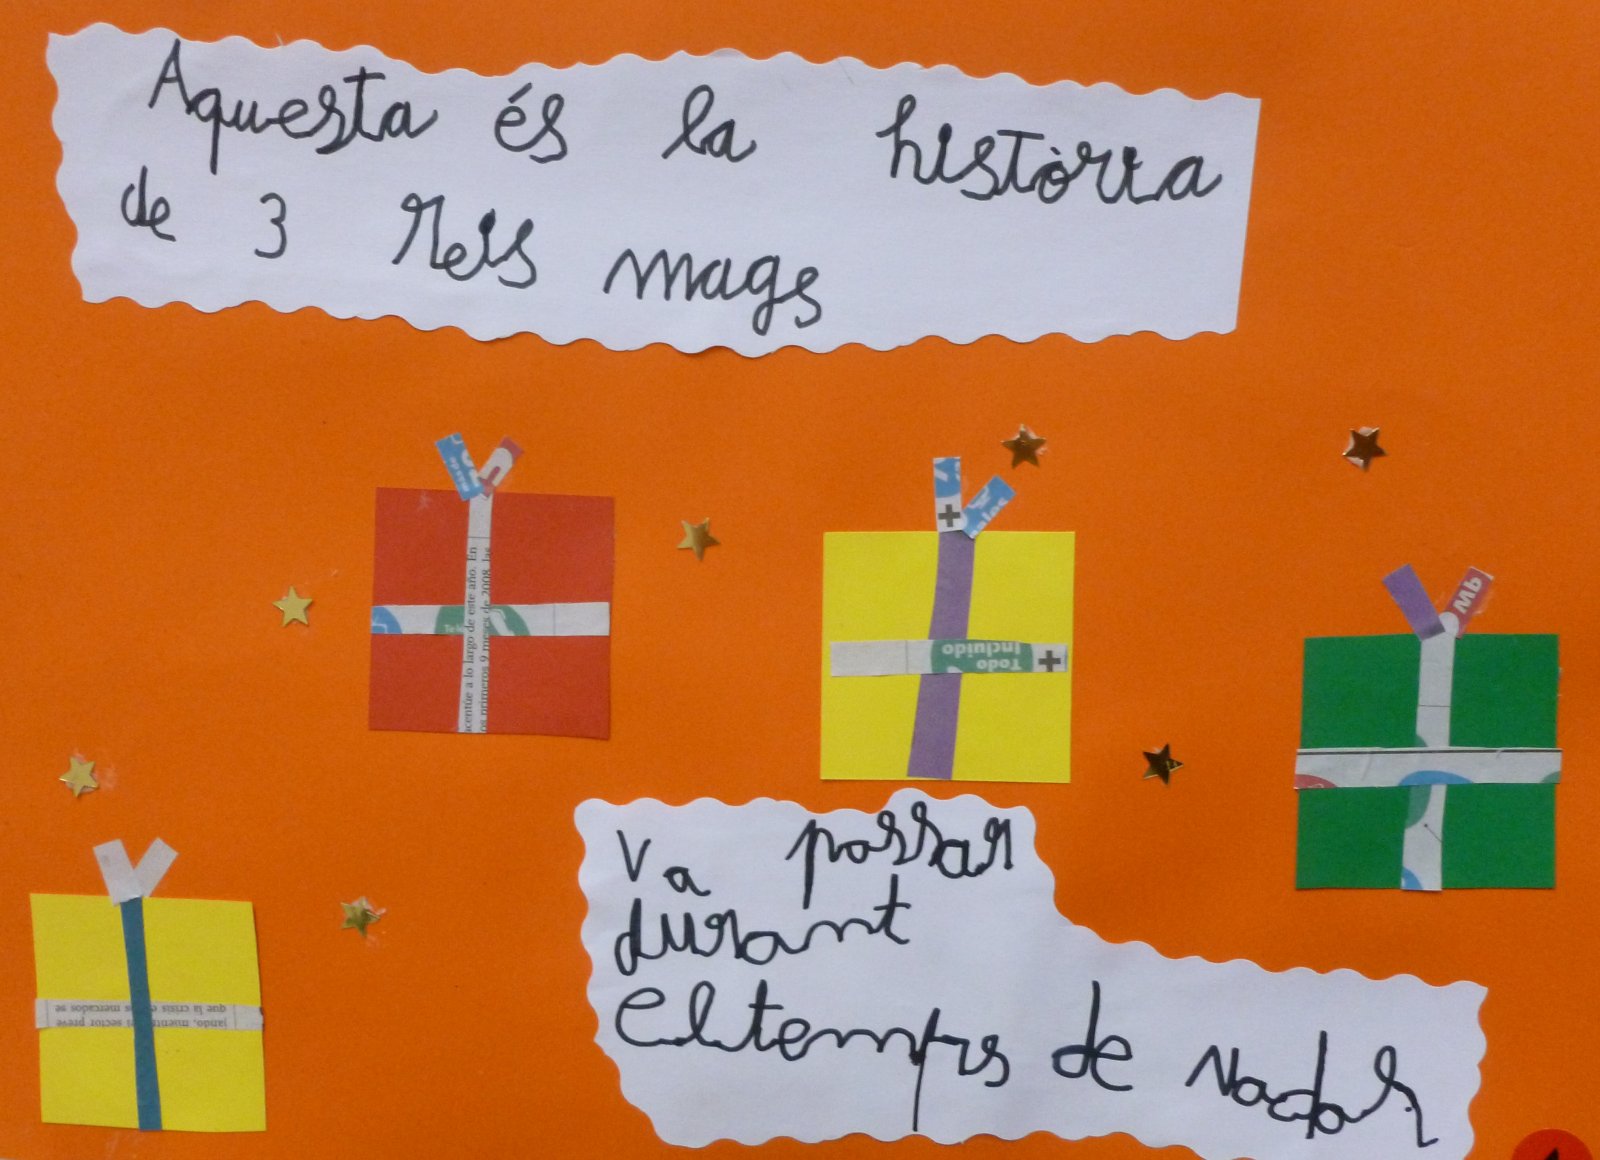 Aquesta és la història
de 3 reis mags
más de
acentúe a lo largo de este año. En
os primeros 9 meses de 2008, las
Todo
Incluido
jando, mientras el sector prevé
que la crisis mercados se
Va passar
durant
el temps de nadal